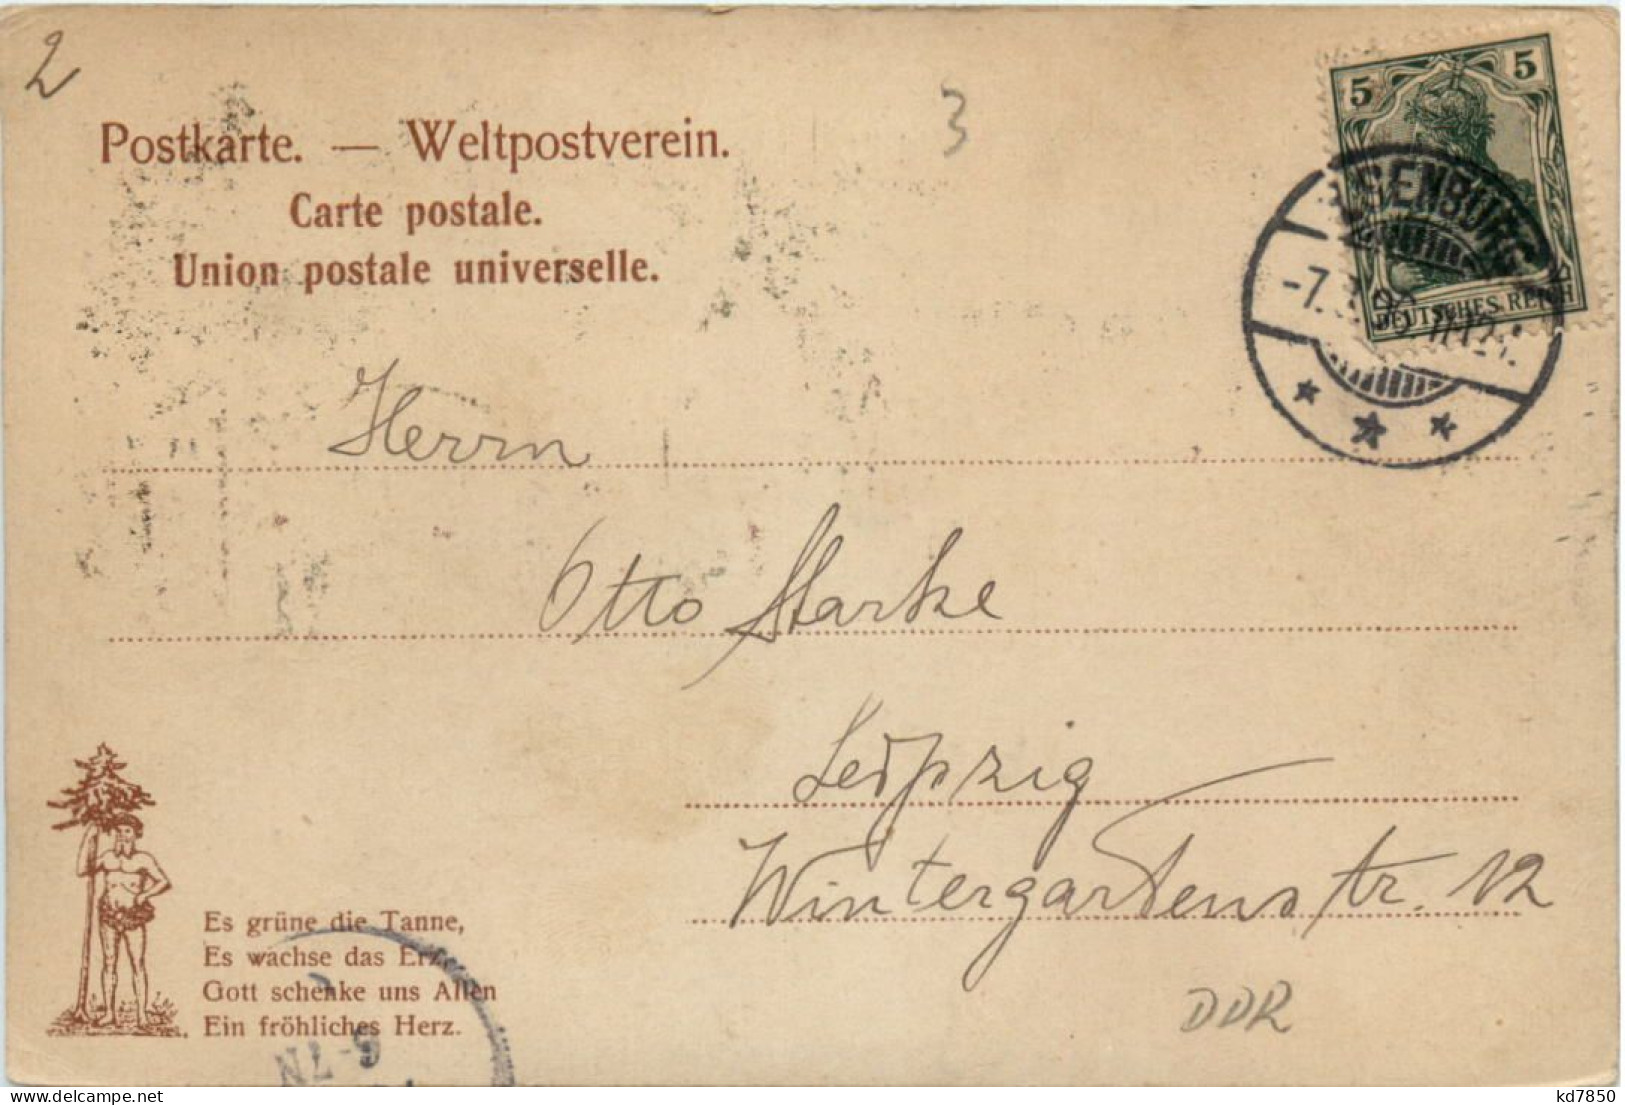 2
3
5 5
DEUTSCHES REICH
Postkarte. — Weltpostverein.
Carte postale.
Union postale universelle.
Herrn
Otto Starke
Leipzig
Wintergartenstr. 12
Es grüne die Tanne,
Es wachse das Erz,
Gott schenke uns Allen
Ein fröhliches Herz.
DDR
kd7850